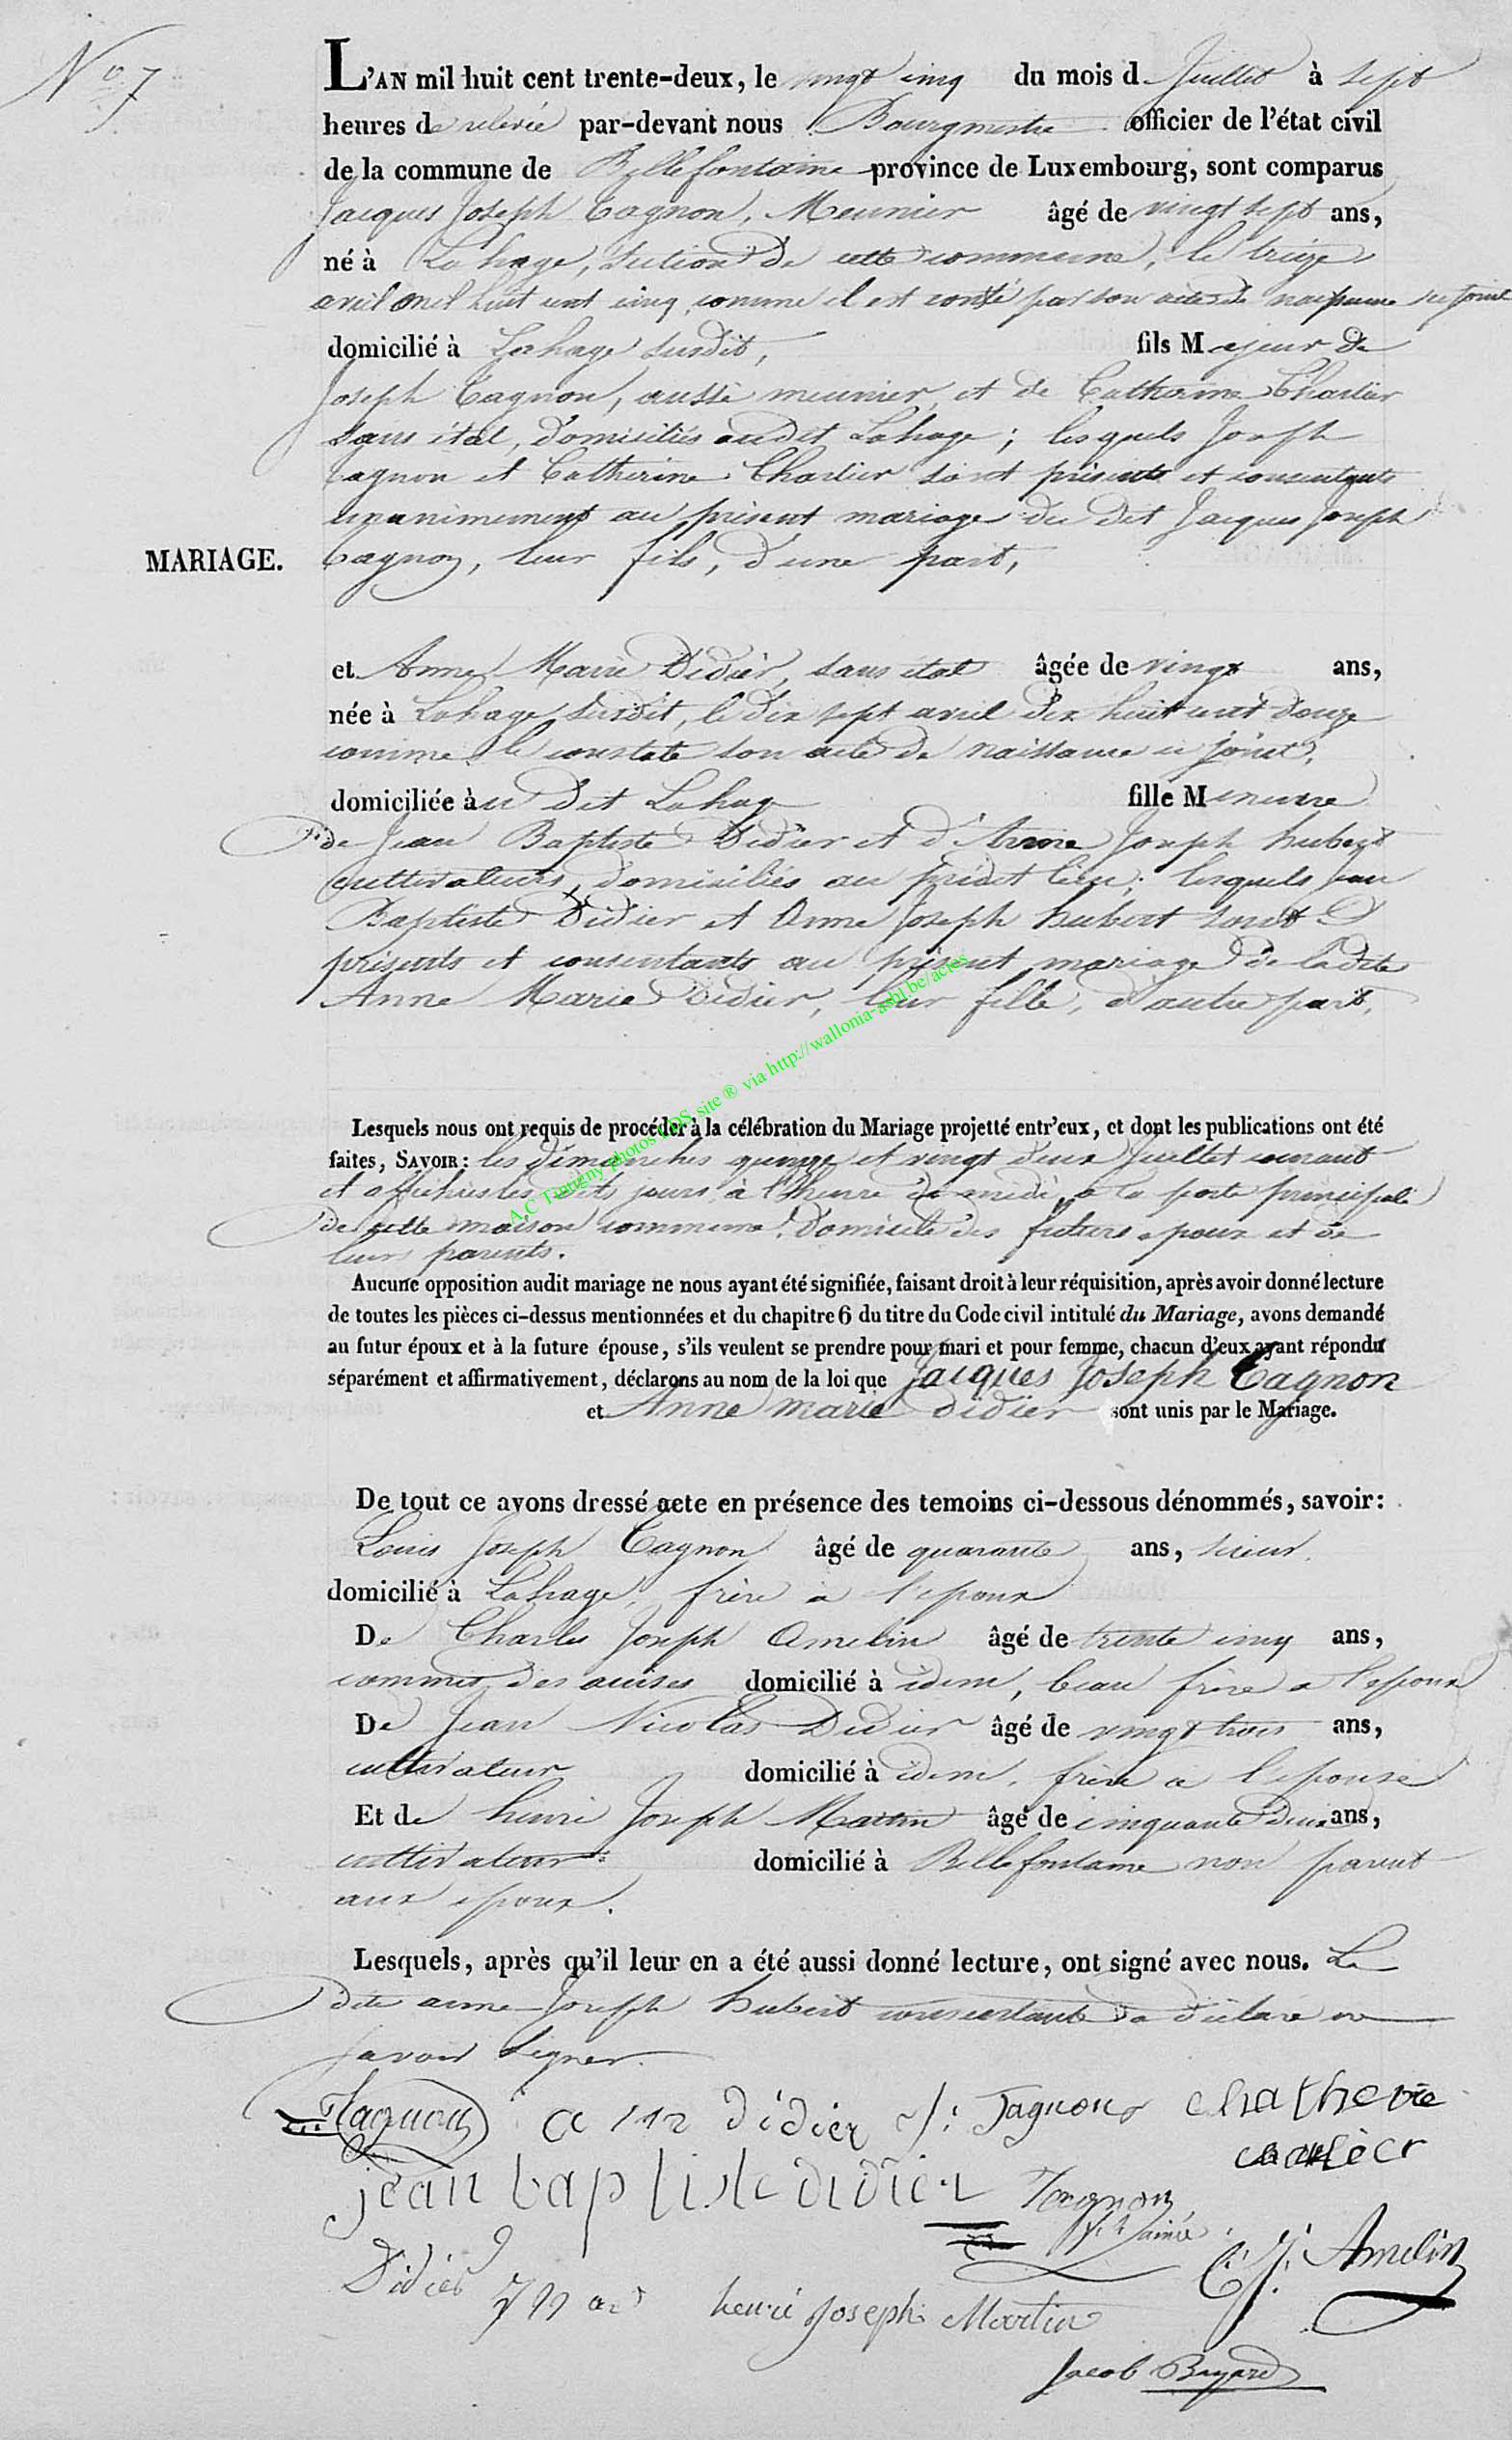 N° 7
L'AN mil huit cent trente-deux, le vingt cinq du mois de Juillet à sept
heures de relevée par-devant nous Bourgmestre officier de l'état civil
de la commune de Bellefontaine province de Luxembourg, sont comparus
Jacques Joseph Tagnon, Meunier âgé de vingt sept ans,
né à Lahage, section de cette commune, le treize
avril mil huit cent cinq, comme il est consté par son acte de naissance ci joint
domicilié à Lahage susdit, fils Majeur de
Joseph Tagnon, aussi meunier, et de Catherine Charlier
sans état, domiciliés audit Lahage; lesquels Joseph
Tagnon et Catherine Charlier sont présents et consentants
unanimement au présent mariage du dit Jacques Joseph
MARIAGE.
Tagnon, leur fils, d'une part,
et Anne Marie Didier, sans état âgée de vingt ans,
née à Lahage susdit, le dix sept avril dix huit cent douze
comme le constate son acte de naissance ci joint,
domiciliée à u dit Lahage fille Mineure
de Jean Baptiste Didier et d'Anne Joseph hubert
cultivateurs, domiciliés au prédit lieu; lesquels Jean
Baptiste Didier et Anne Joseph hubert sont
présents et consentants au présent mariage de ladite
Anne Marie Didier, leur fille, d'autre part,
Lesquels nous ont requis de procéder à la célébration du Mariage projetté entr'eux, et dont les publications ont été
faites, SAVOIR: les dimanches quinze et vingt deux Juillet courant
et affichées les dits jours à l'heure de midi, à la porte principale
de cette maison commune, domicile des futurs epoux et de
leurs parents.
Aucune opposition audit mariage ne nous ayant été signifiée, faisant droit à leur réquisition, après avoir donné lecture
de toutes les pièces ci-dessus mentionnées et du chapitre 6 du titre du Code civil intitulé du Mariage, avons demandé
au futur époux et à la future épouse, s'ils veulent se prendre pour mari et pour femme, chacun d'eux ayant répondu
séparément et affirmativement, déclarons au nom de la loi que Jacques Joseph Tagnon
et Anne marie didier sont unis par le Mariage.
De tout ce avons dressé acte en présence des temoins ci-dessous dénommés, savoir:
Louis Joseph Tagnon âgé de quarante ans, scieur,
domicilié à Lahage, frère a l'epoux
De Charles Joseph Amelin âgé de trente cinq ans,
commis des acises domicilié à idem, beau frère a l'epoux
De Jean Nicolas Didier âgé de vingt trois ans,
cultivateur domicilié à idem, frère a l'epouse
Et de henri Joseph Martin âgé de cinquante deux ans,
cultivateur domicilié à Bellefontaine non parent
aux epoux.
Lesquels, après qu'il leur en a été aussi donné lecture, ont signé avec nous. La
dite anne Joseph hubert consentante a déclaré ne
savoir signer.
Jtagnon a m didier J: Tagnon chatherie
charlier
jean baptiste didier Tagnon
L. J. l'ainé
C. J. Amelin
Didier
henri Joseph Martin
Jacob Bayard
A.C Tintigny photos LDS site ® via http://wallonia-asbl.be/actes